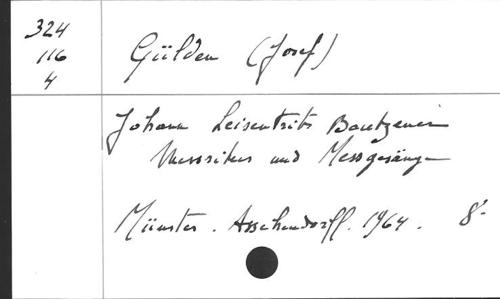 324
116
4
Gülden (Josef)
Johann Leisentrits Bautzener
Messritus und Messgesänge
Münster. Asschendorff. 1964. 8°-